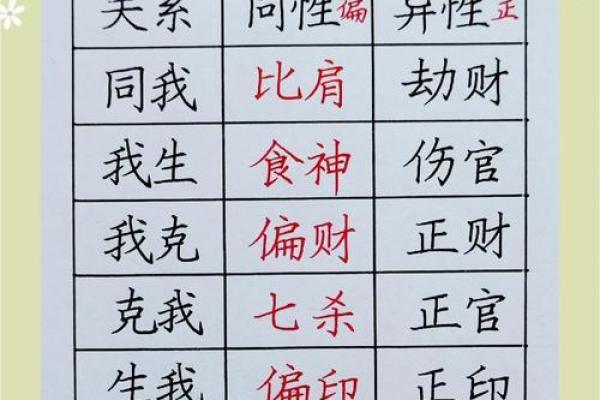 关系 同性偏 异性正
同我 比肩 劫财
我生 食神 伤官
我克 偏财 正财
克我 七杀 正官
生我 偏印 正印